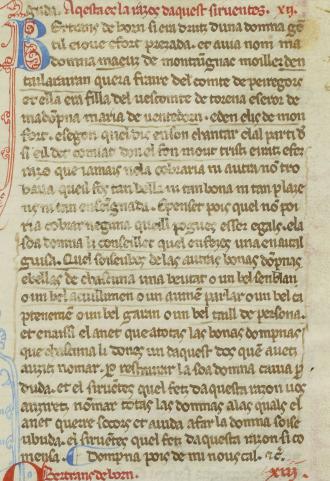 guda. Aqesta es la razos daquest siruentes. XII.
Bertrans de born si era drutz duna domna gen
til e ioue e fort prezada. et auia nom ma
domna maeuz de montaingnac moiller den
tailairan quera fraire del comte de peiregors
et ella era filla del uescomte de torena e seror de
madompna maria de uentedorn. e den elis de mon
fort. e segon quel dis en son chantar ela.l parti de
si e.l det comiat don el fon mout tristz e iratz e fetz
razo que iamais no la cobraria ni autra no.n tro
baria queil fos tan bella ni tan bona ni tan plazen
nis ni tan enseingnada. e penset pois quel no po
ria cobrar neguna queill pogues esser egals. e la
soa domna li conseillet quel en fezes una en aital
guisa. Quel soisebes de las autras bonas dompnas
e bellas de chascuna una beutat o un bel senblan
o un bel acuillimen o un auinen parlar o un bel ca
pteniemen o un bel garan o un bel taill de persona.
et enaissi el anet queren a totas las bonas dompnas
que chascuna li dones un daquest dos que.m auetz
auzit nomar. per restaurar la soa domna cauia per
duda. et el siruentes quel fetz daquesta razon uos
auziretz nomar totas las domnas a las quals el
anet querre socors et aiuda a far la domna soise
ubuda. e.l siruentes quel fetz daquesta razon si co
mensa. Dompna pois de mi no.us cal. &c.
Bertrans de born. XIII.